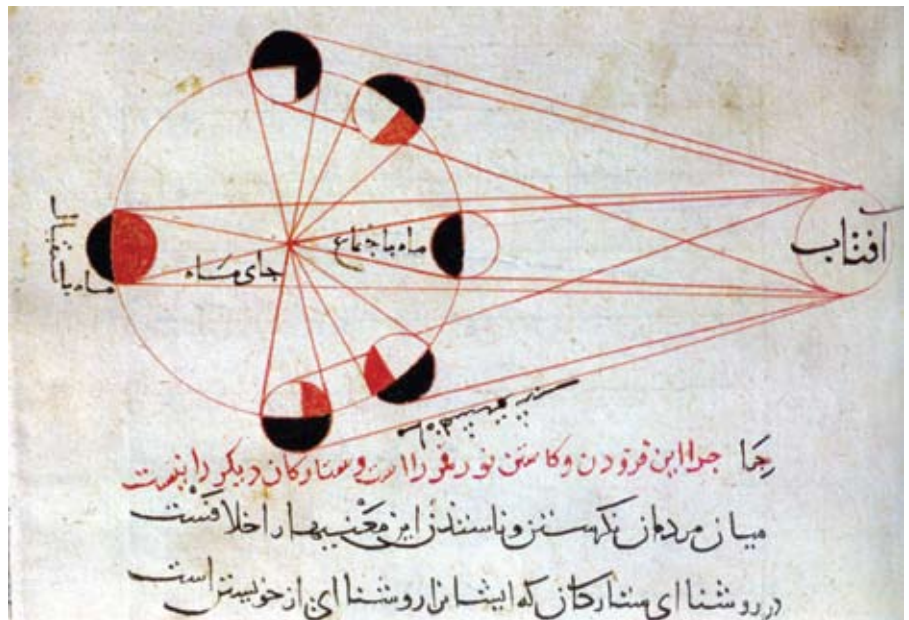 افتاب
ماه باجتماع
جای ماه
ماه باستقبال
چرا این فزودن و کاستن نور قمر را است و ستارکان دیکر را نیست
میان مردمان نکرستن این معنیها را خلافست
در روشنای ستارکان که ایشانرا روشنای از خویشتن است